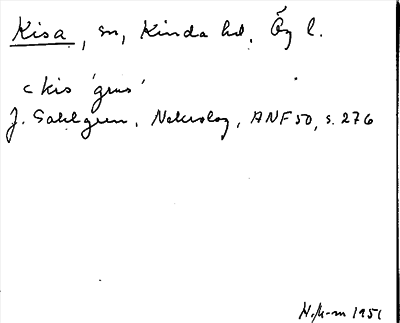 Kisa, sn, Kinda hd, Ög l.
< kis 'grus'
J. Sahlgren, Nekrolog, ANF 50, s. 276
H.   1951